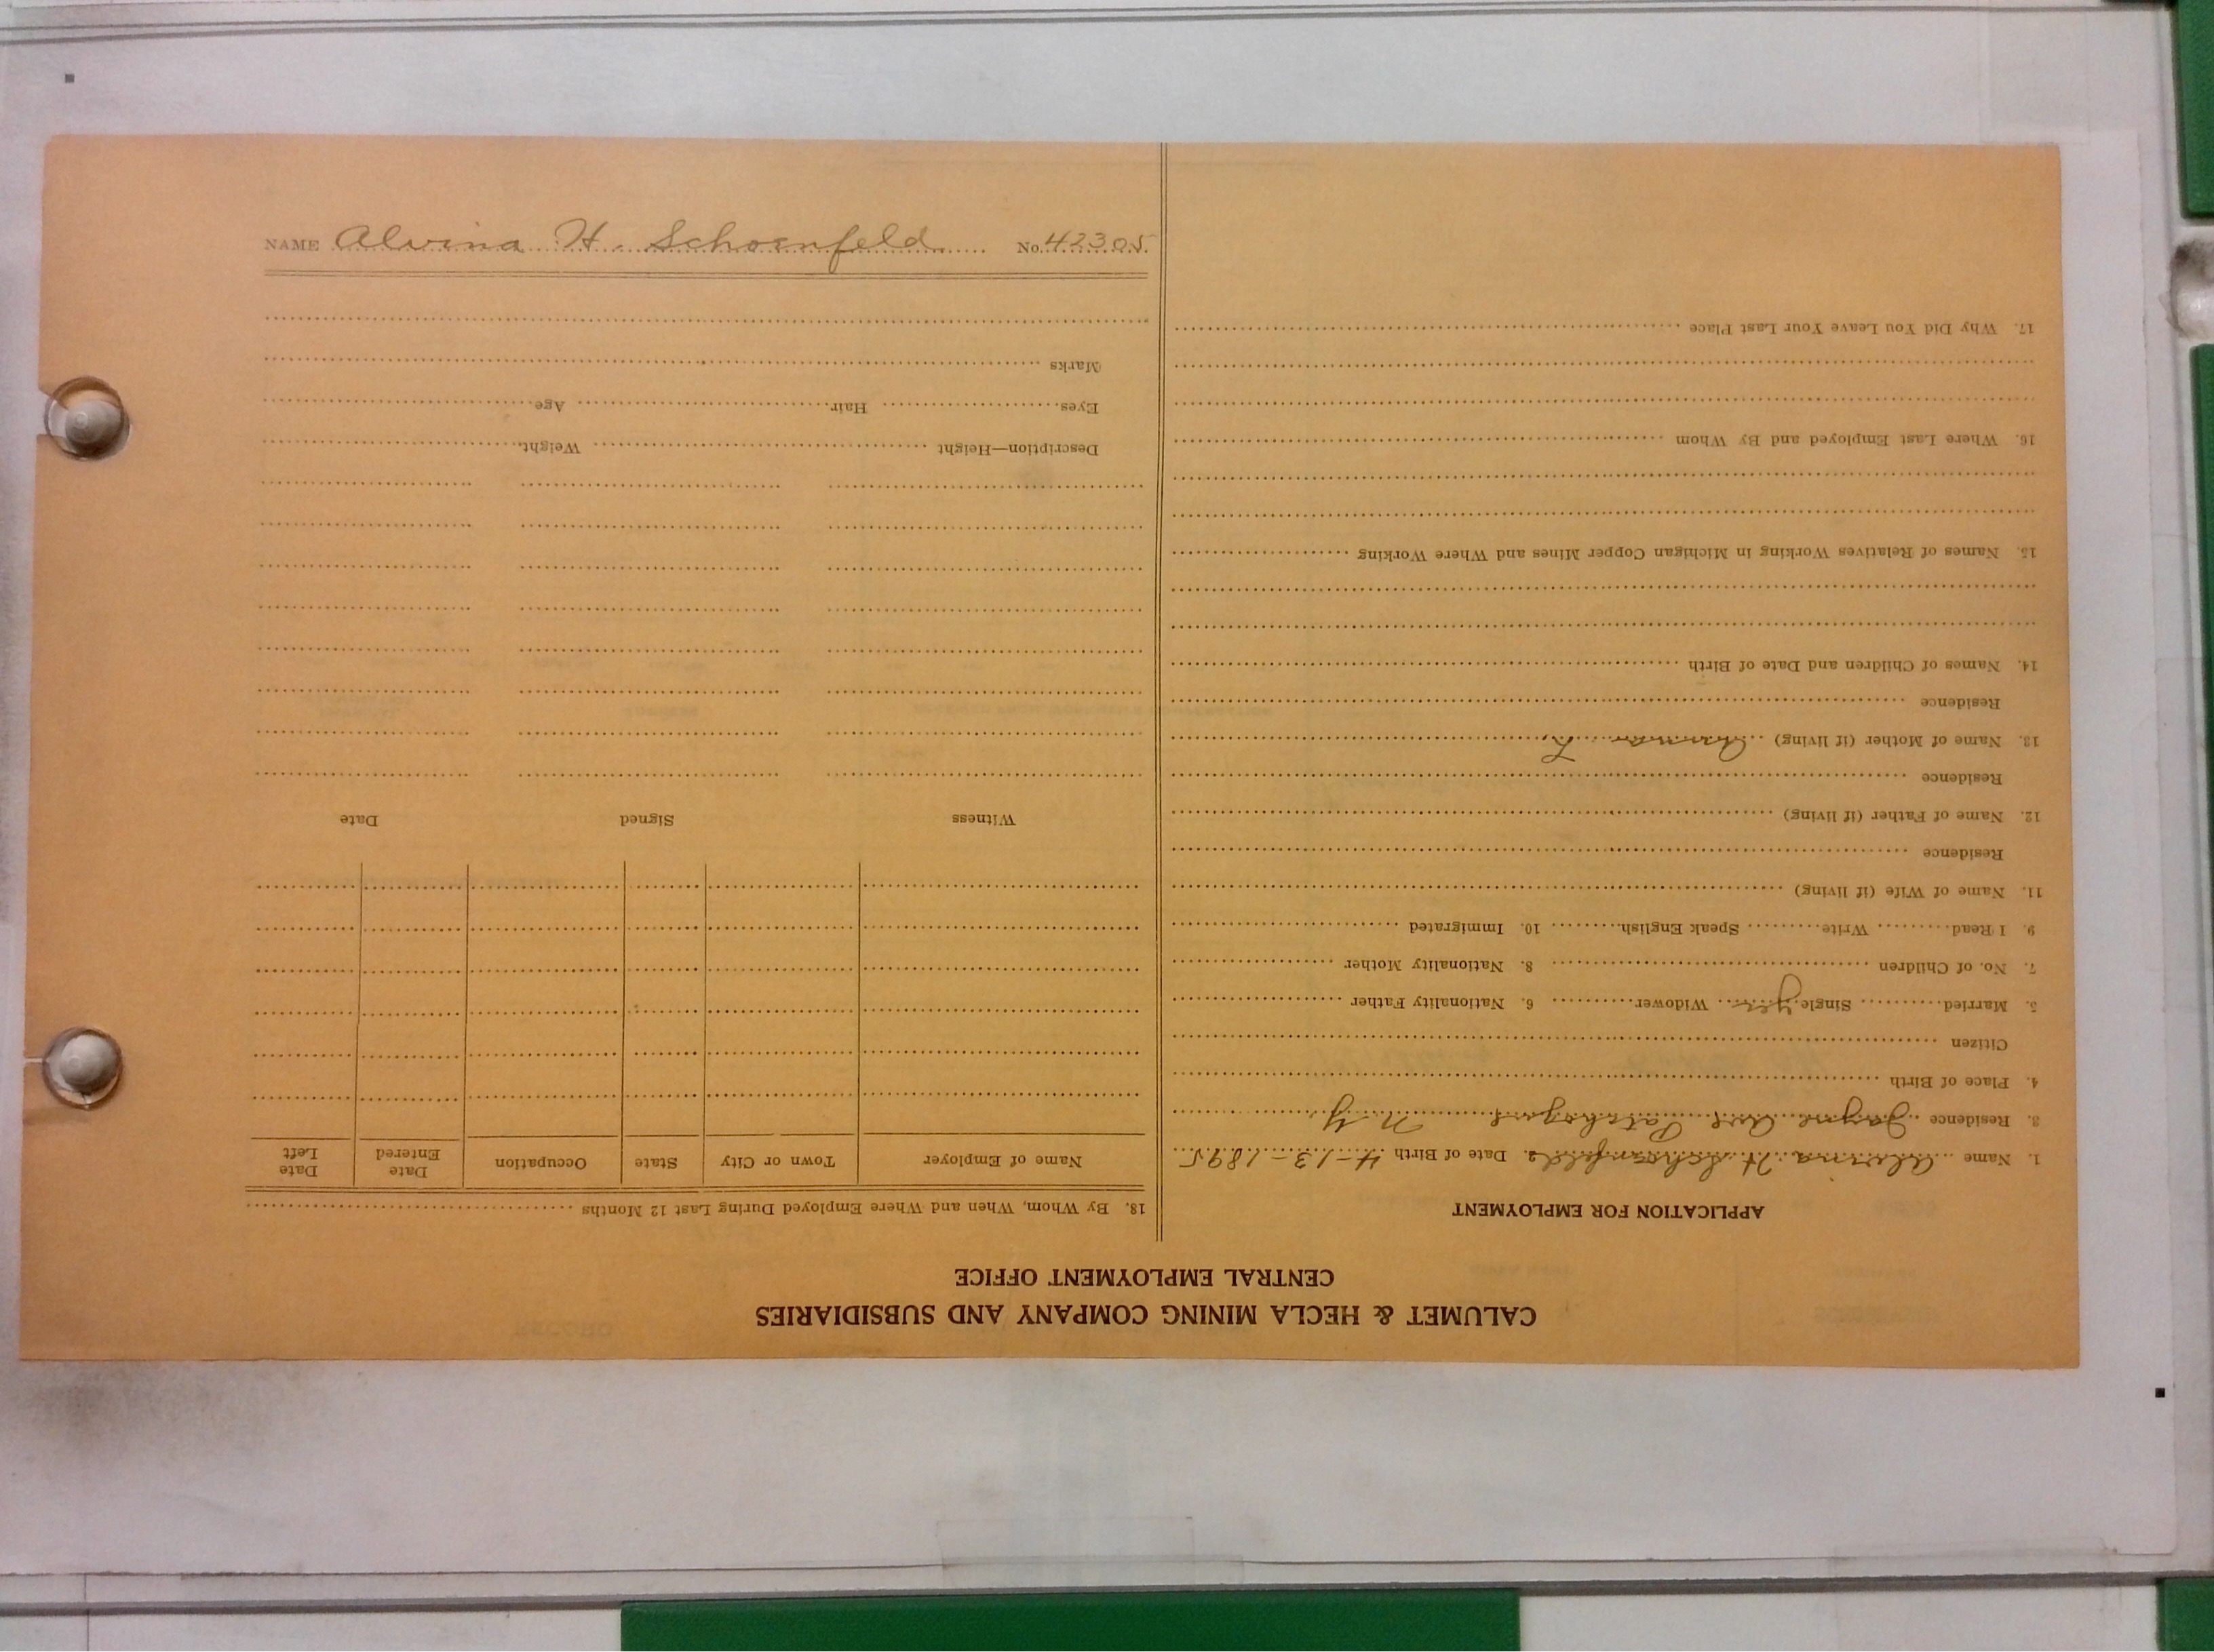 CALUMET & HECLA MINING COMPANY AND SUBSIDIARIES
CENTRAL EMPLOYMENT OFFICE
APPLICATION FOR EMPLOYMENT
1. Name Alvina H. Schoenfeld 2. Date of Birth 4-13-1895
3. Residence Jayne Ave Patchogue N.Y.
4. Place of Birth
Citizen
5. Married Single yes Widower 6. Nationality Father
7. No. of Children 8. Nationality Mother
9. I Read Write Speak English 10. Immigrated
11. Name of Wife (if living)
Residence
12. Name of Father (if living)
Residence
13. Name of Mother (if living) Anna L.
Residence
14. Names of Children and Date of Birth
15. Names of Relatives Working in Michigan Copper Mines and Where Working
16. Where Last Employed and By Whom
17. Why Did You Leave Your Last Place
18. By Whom, When and Where Employed During Last 12 Months
Name of Employer Town or City State Occupation Date Entered Date Left
Witness Signed Date
Description—Height Weight
Eyes Hair Age
Marks
NAME Alvina H. Schoenfeld No. 42305